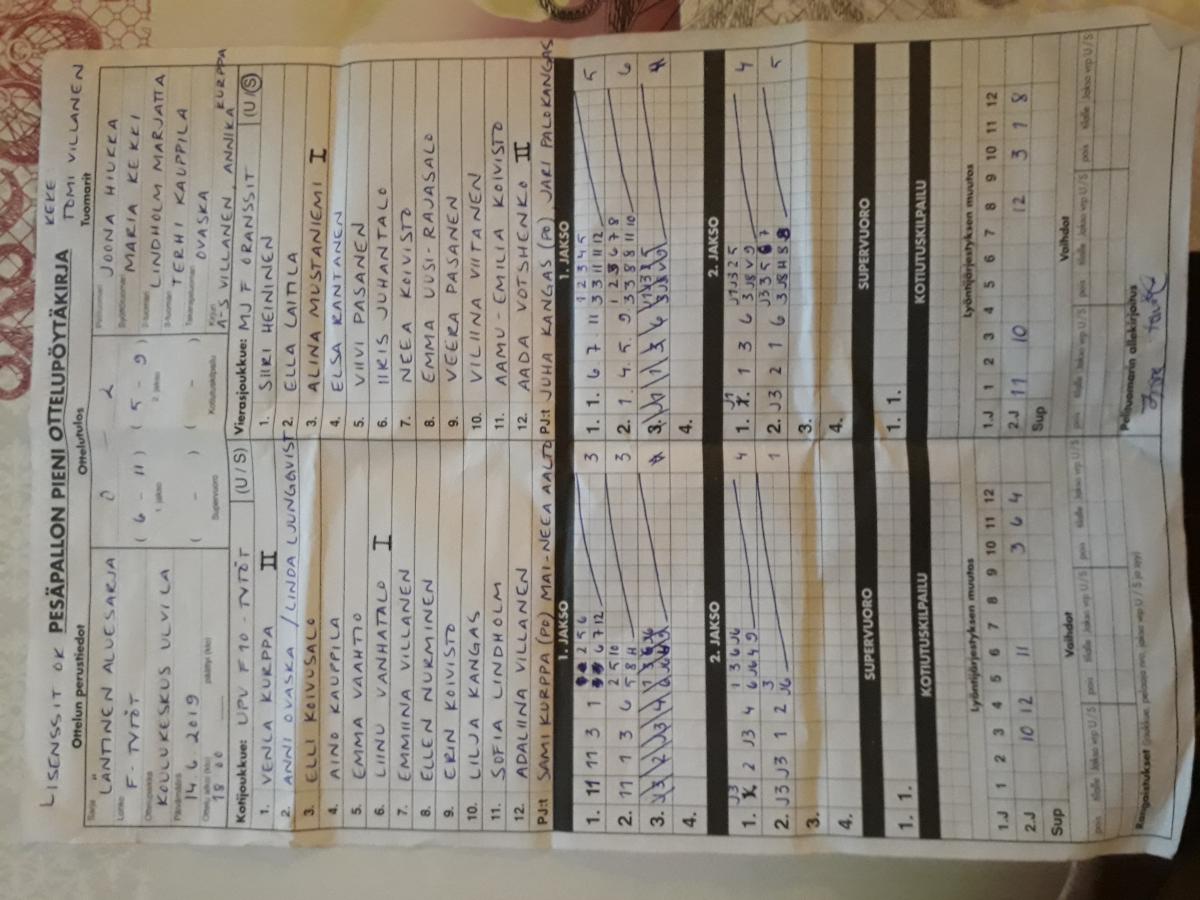 LISENSSIT OK PESÄPALLON PIENI OTTELUPÖYTÄKIRJA KEKE
TOMI VILLANEN
Ottelun perustiedot Ottelutulos Tuomarit
Sarja LÄNTINEN ALUESARJA
Lohko F-TYTÖT
Ottelupaikka KOULUKESKUS ULVILA
Päivämäärä 14.6.2019
Ottelu alkoi (klo) 18 00 päättyi (klo)
0 - 2
(6 - 11) (5 - 9)
1 jakso 2 jakso
( - ) ( - )
Supervuoro Kotiutuskilpailu
Pelituomari JOONA HIUKKA
Syöttötuomari MARIA KEKKI
2-tuomari LINDHOLM MARJATTA
3-tuomari TERHI KAUPPILA
Takarajatuomari OVASKA
Kirjuri A-S VILLANEN, ANNIKA KURPPA
Kotijoukkue: UPV F10-TYTÖT (U / S)
1. VENLA KURPPA II
2. ANNI OVASKA / LINDA LJUNGQVIST
3. ELLI KOIVUSALO
4. AINO KAUPPILA
5. EMMA VAAHTIO
6. LIINU VANHATALO I
7. EMMIINA VILLANEN
8. ELLEN NURMINEN
9. ERIN KOIVISTO
10. LILJA KANGAS
11. SOFIA LINDHOLM
12. ADALIINA VILLANEN
PJ:t SAMI KURPPA (PO) MAI-NEEA AALTO
Vierasjoukkue: MJ F ORANSSIT (U / S)
1. SIIRI HEININEN
2. ELLA LAITILA
3. ALINA MUSTANIEMI I
4. ELSA RANTANEN
5. VIIVI PASANEN
6. IIRIS JUHANTALO
7. NEEA KOIVISTO
8. EMMA UUSI-RAJASALO
9. VEERA PASANEN
10. VILIINA VIITANEN
11. AAMU-EMILIA KOIVISTO
12. AADA VOTSHENKO II
PJ:t JUHA KANGAS (PO) JARI PALOKANGAS
1. JAKSO 1. JAKSO
1. 11 11 3 1 2 5 6 3
6 7 12
2. 11 1 3 6 2 5 10 3
5 8 11
3.
4.
1. 1. 6. 7 11 1 2 3 4 5 5
3 3 11 11 12
2. 1. 4. 5. 9. 1 2 3 6 7 8 6
3 3 8 8 11 10
3.
4.
2. JAKSO 2. JAKSO
J3
1. 2 J3 4 1 3 6 J6 4
6 J6 4 9
2. J3 J3 1 2 3 1
J6
3.
4.
J1
1. 1 3 6 J1 J3 2 5 4
3 J8 V 9
2. J3 2 1 6 J3 3 5 6 7 5
3 J8 H 8 8
3.
4.
SUPERVUORO SUPERVUORO
1. 1. 1. 1.
KOTIUTUSKILPAILU KOTIUTUSKILPAILU
Lyöntijärjestyksen muutos Lyöntijärjestyksen muutos
1.J 1 2 3 4 5 6 7 8 9 10 11 12
2.J 10 12 11 3 6 4
Sup
1.J 1 2 3 4 5 6 7 8 9 10 11 12
2.J 11 10 12 3 7 8
Sup
Vaihdot Vaihdot
pois tilalle Jakso vrp U / S pois tilalle Jakso vrp U / S pois tilalle Jakso vrp U / S pois tilalle Jakso vrp U / S
Rangaistukset (joukkue, pelaajan nro, jakso vrp U / S ja syy)
Pelituomarin allekirjoitus